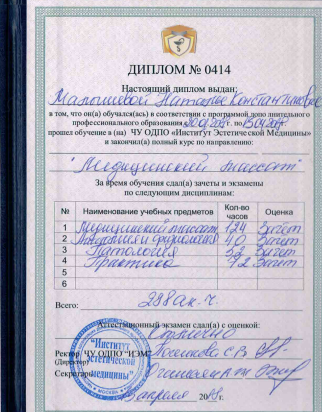 ДИПЛОМ № 0414
Настоящий диплом выдан:
Малышевой Наталье Константиновне
в том, что он(а) обучался(ась) в соответствии с программой дополнительного
профессионального образования по
прошел обучение в (на) ЧУ ОДПО «Институт Эстетической Медицины»
и закончил(а) полный курс по направлению:
"Медицинский массаж"
За время обучения сдал(а) зачеты и экзамены
по следующим дисциплинам:
№ Наименование учебных предметов Кол-во часов Оценка
1 Медицинский массаж 124 Зачет
2 Анатомия и физиология 40 Зачет
3 Патология 52 Зачет
4 Практика 72 Зачет
5
6
Всего: 288 ак. ч.
Аттестационный экзамен сдал(а) с оценкой:
Отлично
Ректор ЧУ ОДПО "ИЭМ"
(Директор)
Секретарь
"Институт эстетической медицины"
апреля 20